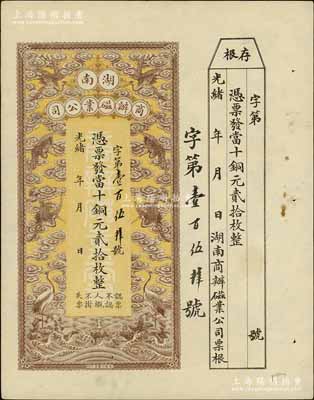 上海陽明拍賣
湖南
商辦磁業公司
字第壹百伍拾肆號
憑票發當十銅元貳拾枚整
光緒 年 月 日
認票不認人
失票不掛
字第壹百伍拾肆號
存根
字第 號
憑票發當十銅元貳拾枚整
光緒 年 月 日湖南商辦磁業公司票根